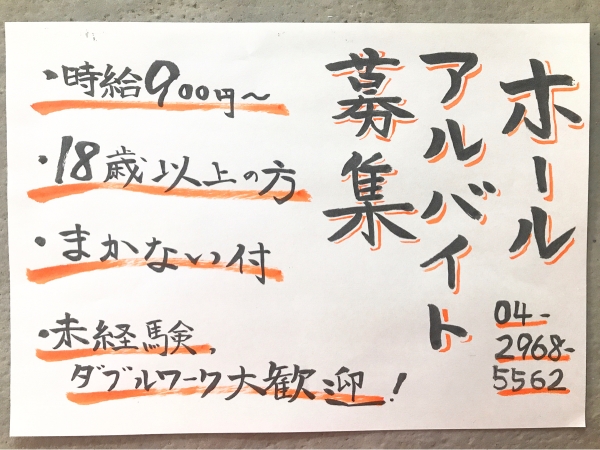 ホール
アルバイト
募集
04-
2968-
5562
・時給900円〜
・18歳以上の方
・まかない付
・未経験、
ダブルワーク大歓迎!